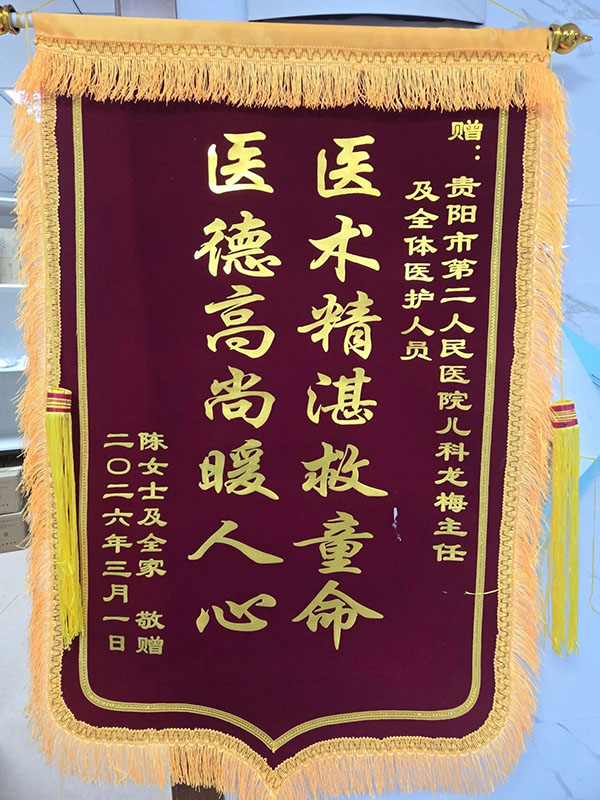 赠：贵阳市第二人民医院儿科龙梅主任
及全体医护人员
医术精湛救童命
医德高尚暖人心
陈女士及全家 敬赠
二〇二六年三月一日